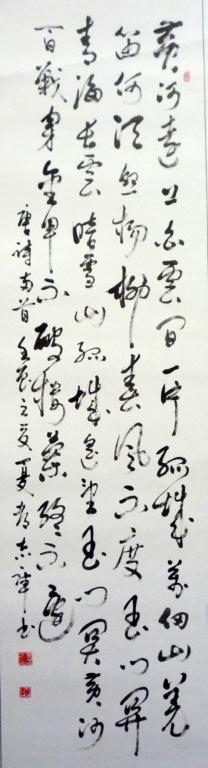 黄河遠上白雲間一片孤城萬仞山羌
笛何須怨楊柳春風不度玉门関
青海長雲暗雪山孤城遥望玉门関黄沙
百戰穿金甲不破樓蘭終不還
唐詩两首壬辰之夏書